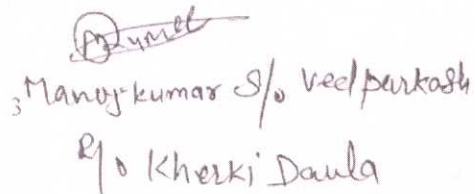 3 Manoj kumar S/o Ved parkash
R/o Kherki Daula